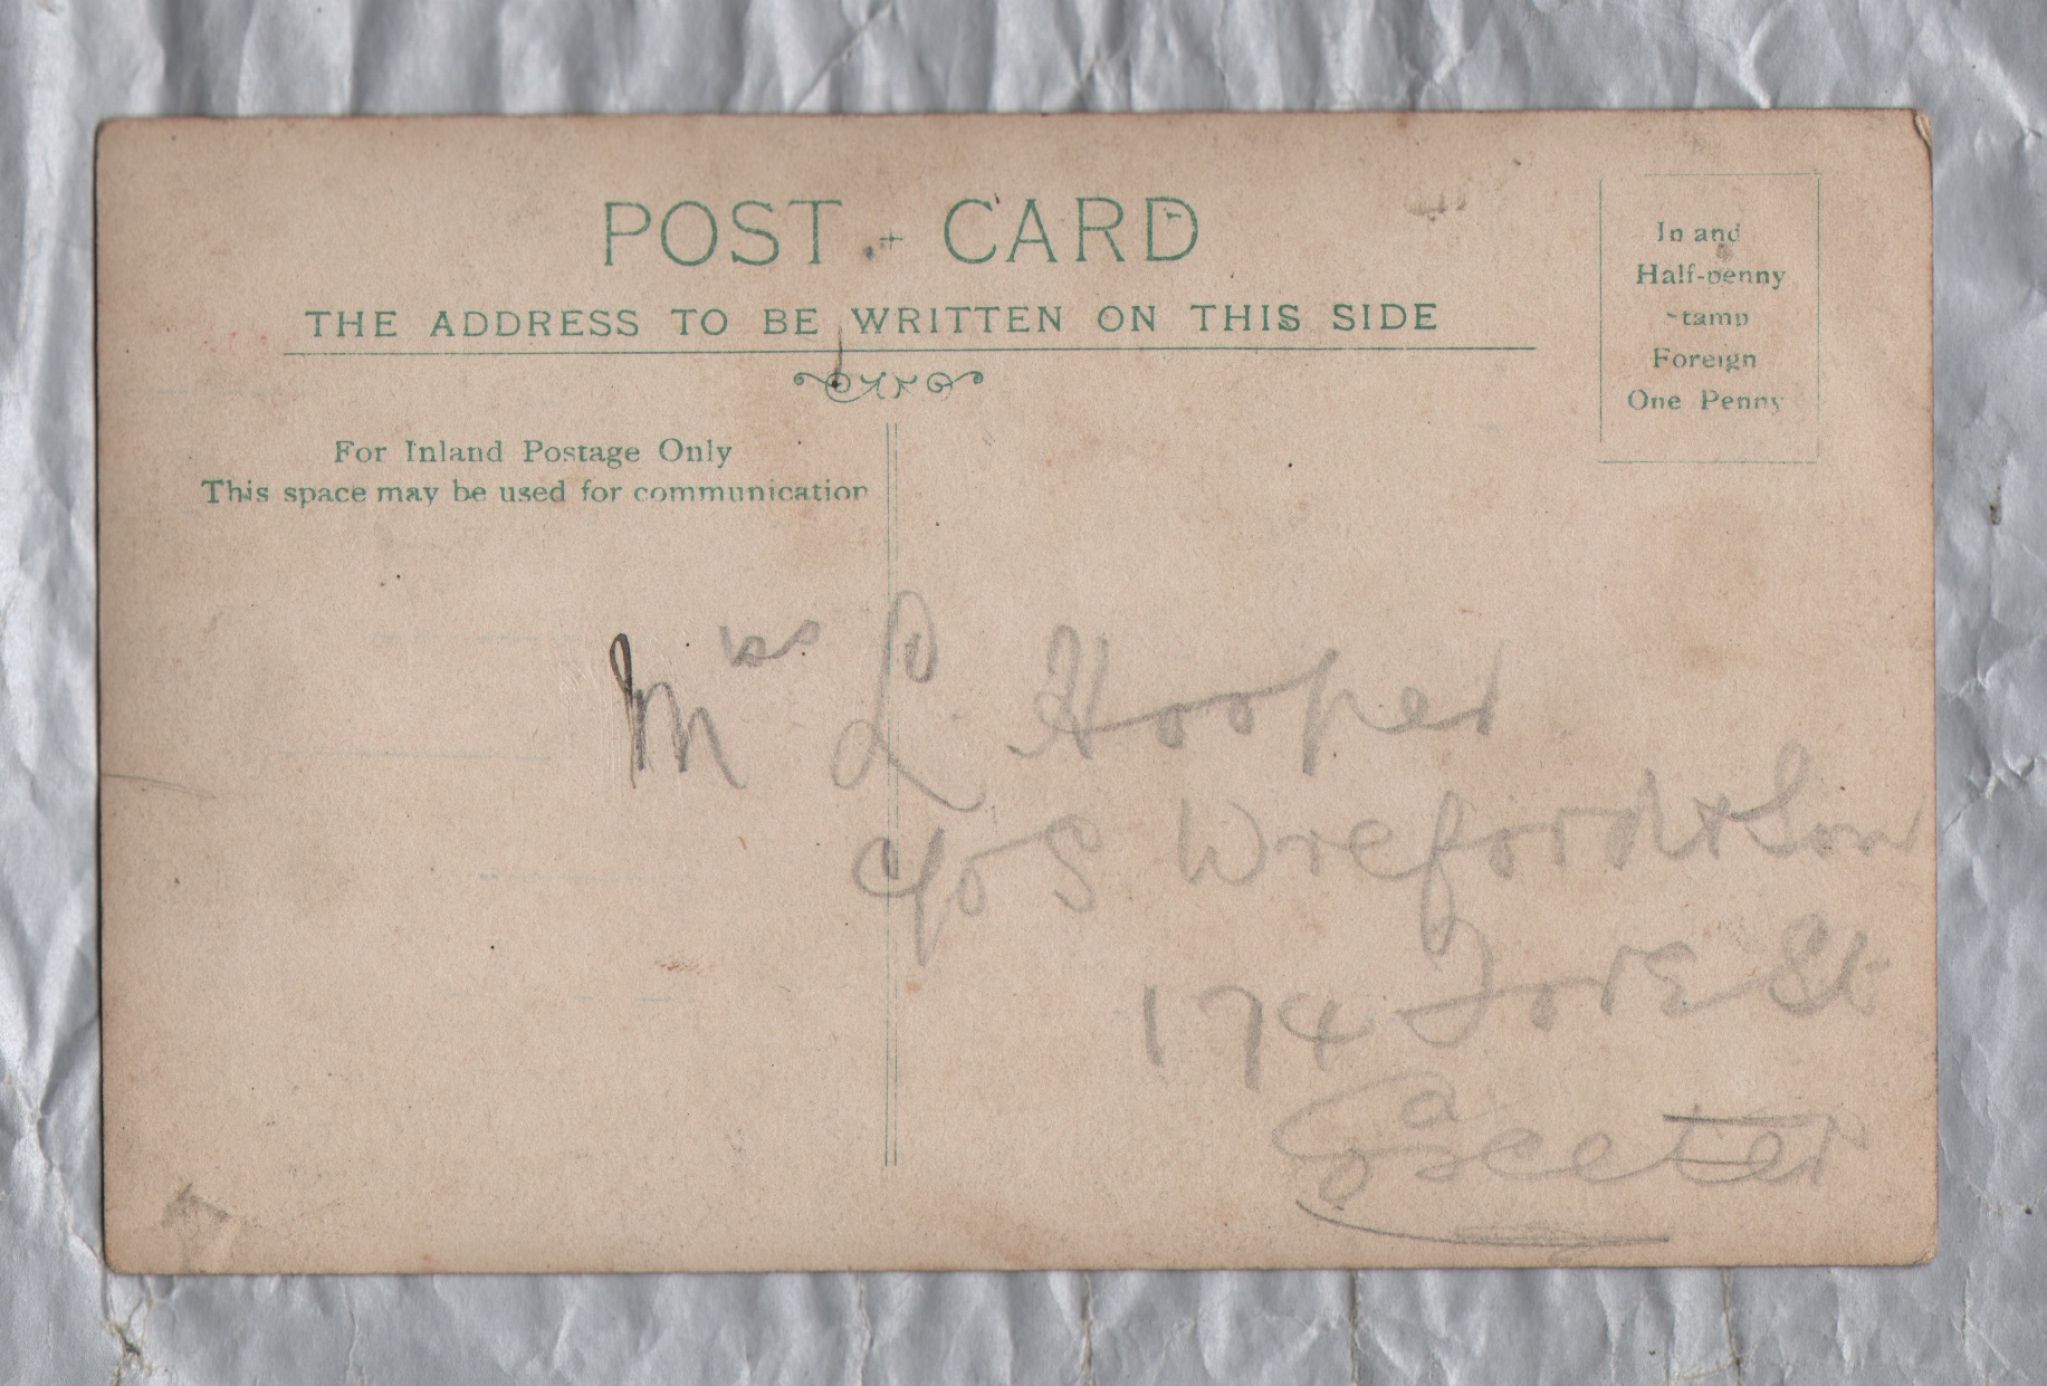 POST + CARD
THE ADDRESS TO BE WRITTEN ON THIS SIDE
In and
Half-penny
stamp
Foreign
One Penny
For Inland Postage Only
This space may be used for communication
Miss L Hooper
c/o S Wreford & Son
174 Fore St
Exeter